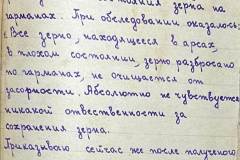 состояния зерна на
гарманах. При обследовании оказалось:
Все зерно, находящееся в арсах,
в плохом состоянии, зерно разбросано
по гарманах, не очищается от
засорности. Абсолютно не чувствуется
никакой отвественности за
сохранения зерна.
Приказываю сейчас же после полученого